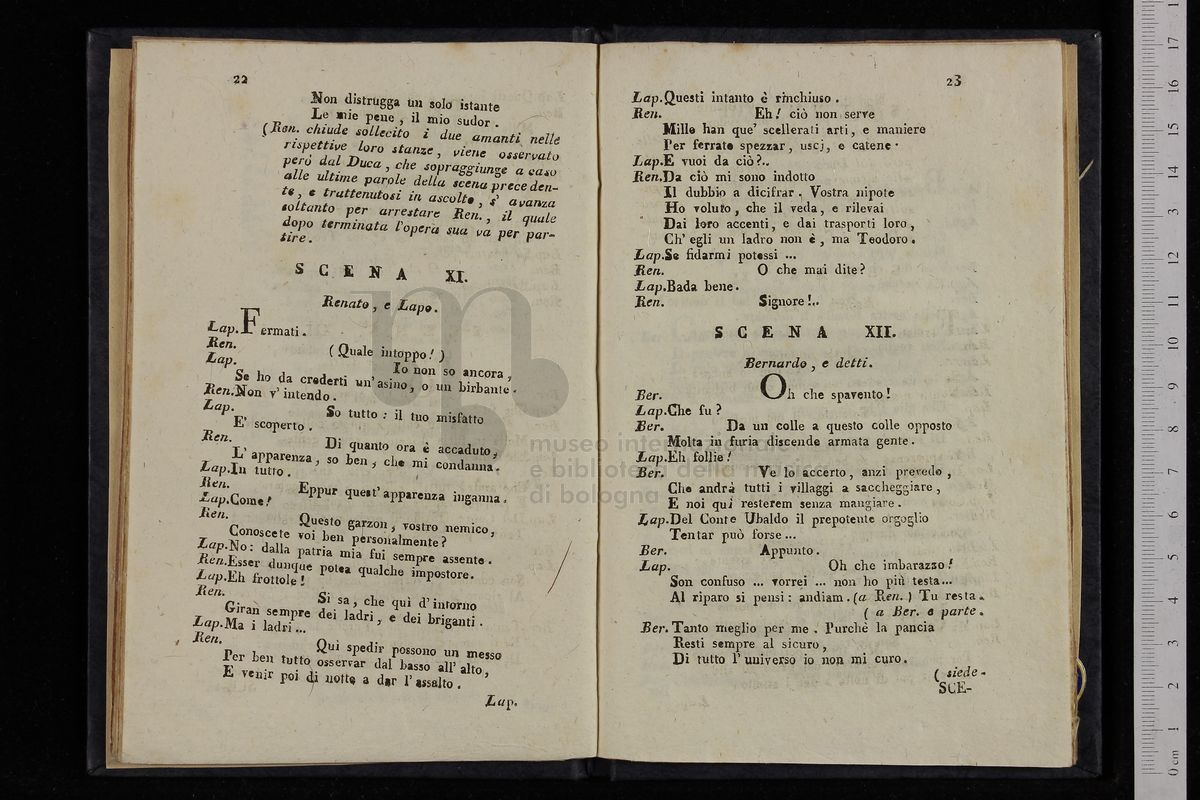 22
Non distrugga un solo istante
Le mie pene , il mio sudor .
(Ren. chiude sollecito i due amanti nelle
rispettive loro stanze, viene osservato
però dal Duca , che sopraggiunge a caso
alle ultime parole della scena preceden-
te, e trattenutosi in ascolto, s' avanza
soltanto per arrestare Ren., il quale
dopo terminata l'opera sua va per par-
tire.
SCENA XI.
Renato, e Lapo.
Lap. Fermati.
Ren. ( Quale intoppo! )
Lap. Io non so ancora,
Se ho da crederti un' asino, o un birbante.
Ren. Non v' intendo.
Lap. So tutto : il tuo misfatto
E' scoperto .
Ren. Di quanto ora è accaduto,
L' apparenza, so ben, che mi condanna.
Lap. In tutto .
Ren. Eppur quest' apparenza inganna.
Lap. Come!
Ren. Questo garzon, vostro nemico,
Conoscete voi ben personalmente?
Lap. No: dalla patria mia fui sempre assente.
Ren. Esser dunque potea qualche impostore.
Lap. Eh frottole !
Ren. Si sa, che quì d' intorno
Giran sempre dei ladri, e dei briganti.
Lap. Ma i ladri ...
Ren. Quì spedir possono un messo
Per ben tutto osservar dal basso all' alto,
E venir poi di notte a dar l' assalto.
Lap.
23
Lap. Questi intanto è rinchiuso .
Ren. Eh! ciò non serve
Mille han que' scellerati arti, e maniere
Per ferrate spezzar, uscj, e catene.
Lap. E vuoi da ciò?..
Ren. Da ciò mi sono indotto
Il dubbio a dicifrar. Vostra nipote
Ho voluto, che il veda, e rilevai
Dai loro accenti, e dai trasporti loro,
Ch' egli un ladro non è, ma Teodoro.
Lap. Se fidarmi potessi ...
Ren. O che mai dite?
Lap. Bada bene.
Ren. Signore!..
SCENA XII.
Bernardo, e detti.
Ber. Oh che spavento!
Lap. Che fu?
Ber. Da un colle a questo colle opposto
Molta in furia discende armata gente.
Lap. Eh follie!
Ber. Ve lo accerto, anzi prevedo,
Che andrà tutti i villaggi a saccheggiare,
E noi quì resterem senza mangiare.
Lap. Del Conte Ubaldo il prepotente orgoglio
Tentar può forse ...
Ber. Appunto.
Lap. Oh che imbarazzo!
Son confuso ... vorrei ... non ho più testa...
Al riparo si pensi: andiam. (a Ren.) Tu resta.
( a Ber. e parte.
Ber. Tanto meglio per me. Purchè la pancia
Resti sempre al sicuro,
Di tutto l' universo io non mi curo.
( siede.
SCE-
museo internazionale
e biblioteca della musica
di bologna
0 cm 1 2 3 4 5 6 7 8 9 10 11 12 13 14 15 16 17